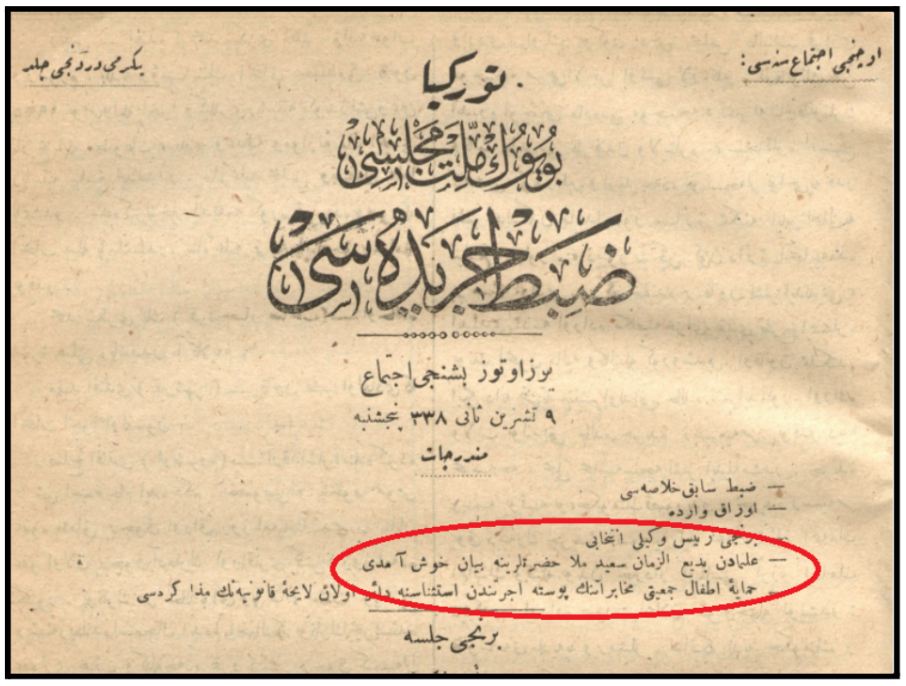 اوچنجی اجتماع سنه‌سی:
یكرمی دردنجی جلد
تورکیا
بویوك ملت مجلسی
ضبط جریده‌سی
یوز اوتوز بشنجی اجتماع
۹ تشرین ثانی ۳۳۸ پنجشنبه
مندرجات
— ضبط سابق خلاصه‌سی
— اوراق وارده
— برنجی رئیس وكیلی انتخابی
— علمادن بدیع الزمان سعید ملا حضرتلرینه بیان خوش آمدی
— حمایهٔ اطفال جمعیتی مخابراتنك پوسته اجرتندن استثناسنه دائر اولان لایحهٔ قانونیه‌نك مذاكره‌سی
برنجی جلسه